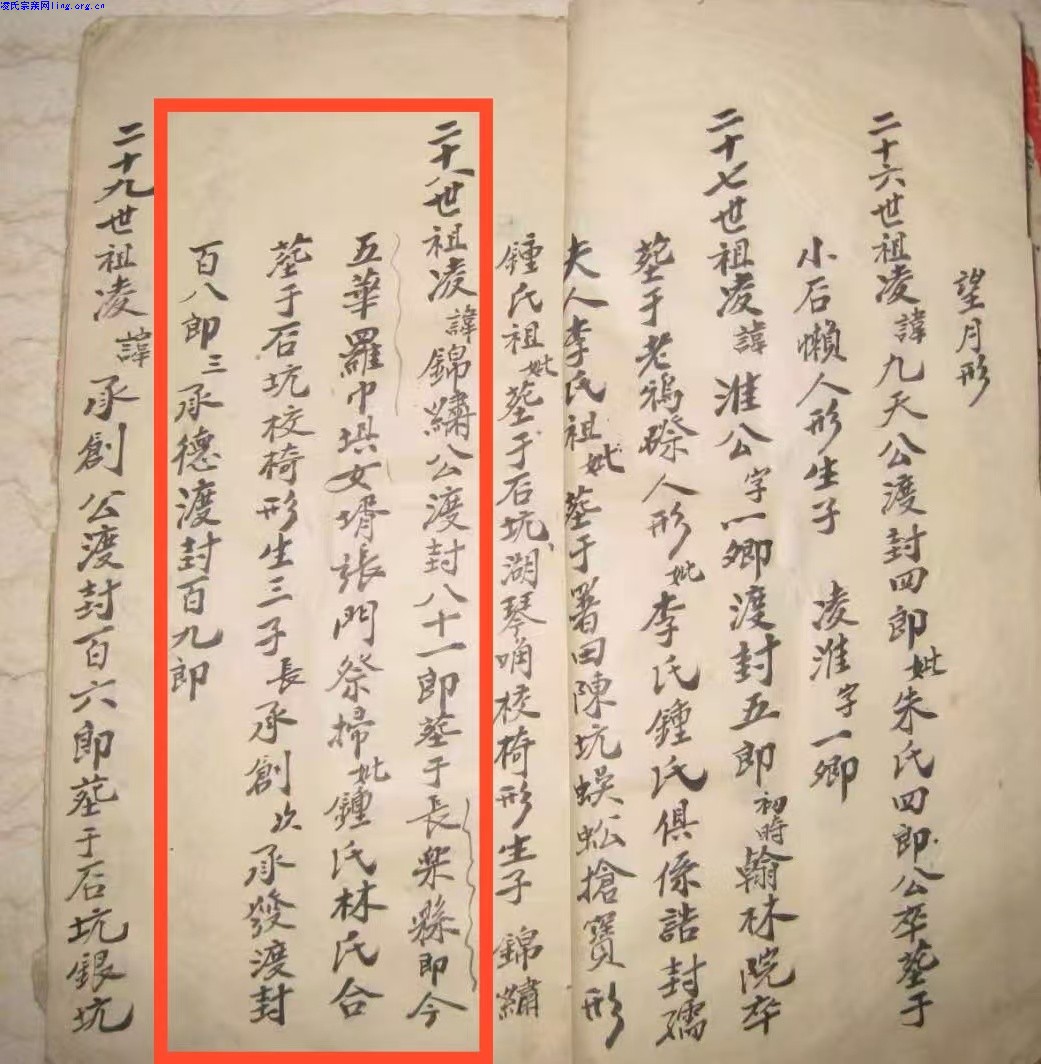 凌氏宗亲网ling.org.cn
望月形
二十六世祖凌諱九天公渡封四郎妣朱氏四郎公卒塟于
小石懶人形生子 凌淮字一卿
二十七世祖凌諱淮公字一卿渡封五郎初時翰林院卒
塟于老鴉磜人形妣李氏鍾氏俱係誥封孺
夫人李氏祖妣塟于署田陳坑蜈蚣搶寶形
鍾氏祖妣塟于石坑湖琴角校椅形生子 錦繡
二十八世祖凌諱錦繡公渡封八十一郎塟于長樂縣即今
五華羅巾埧女壻張門祭掃妣鍾氏林氏合
塟于石坑校椅形生三子長承創次承發渡封
百八郎三承德渡封百九郎
二十九世祖凌諱承創公渡封百六郎塟于石坑銀坑